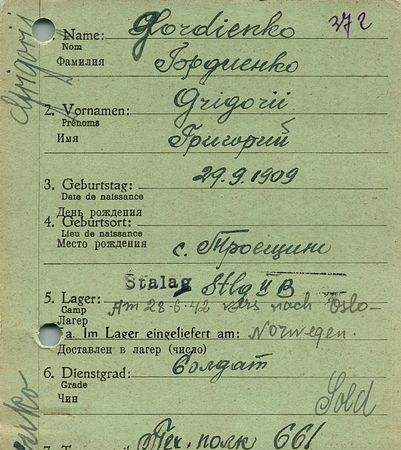 372
Name: Gordienko
Nom
Фамилия Гордиенко
2. Vornamen: Grigorii
Prénoms
Имя Григорий
3. Geburtstag: 29.9.1909
Date de naissance
День рождения
4. Geburtsort:
Lieu de naissance
Место рождения с. Троещин
Stalag Stlg II B
5. Lager: Am 28-6-42 vers nach Oslo-
Camp
Лагер
a. Im Lager eingeliefert am: Norwegen.
Доставлен в лагер (число)
6. Dienstgrad: Солдат
Grade
Чин Sold
полк 661
Grigori